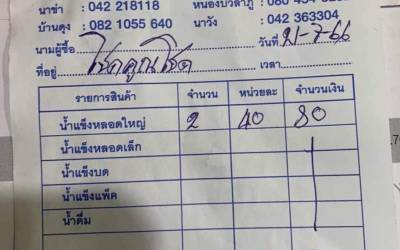 นาข่า : 042 218118 หนองบัวลำภู :
บ้านดุง : 082 1055 640 นาวัง : 042 363304
นามผู้ซื้อ โชคคูณโชค วันที่ 21-7-66
ที่อยู่ เวลา
รายการสินค้า จำนวน หน่วยละ จำนวนเงิน
น้ำแข็งหลอดใหญ่ 2 40 80
น้ำแข็งหลอดเล็ก
น้ำแข็งบด
น้ำแข็งแพ็ค
น้ำดื่ม